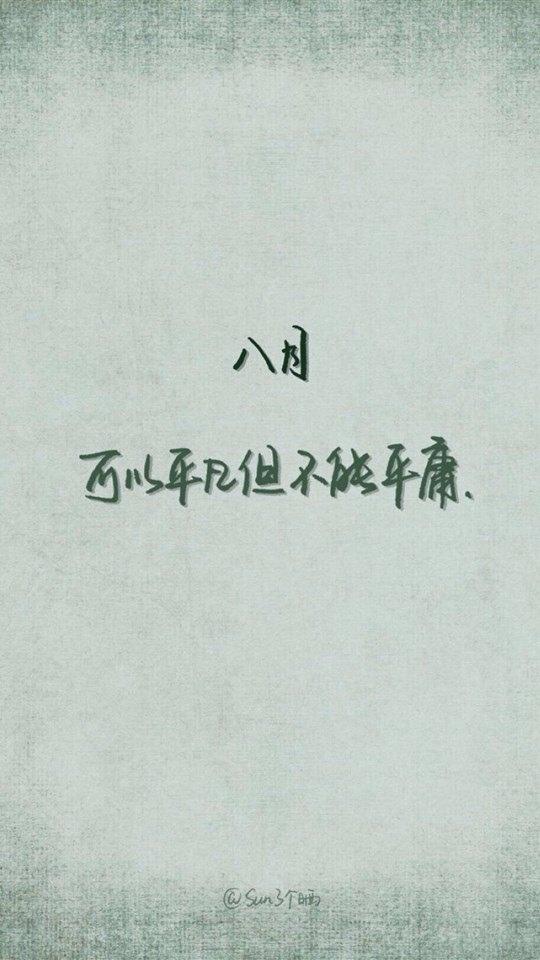 八月
可以平凡但不能平庸.
@Sun3个晒